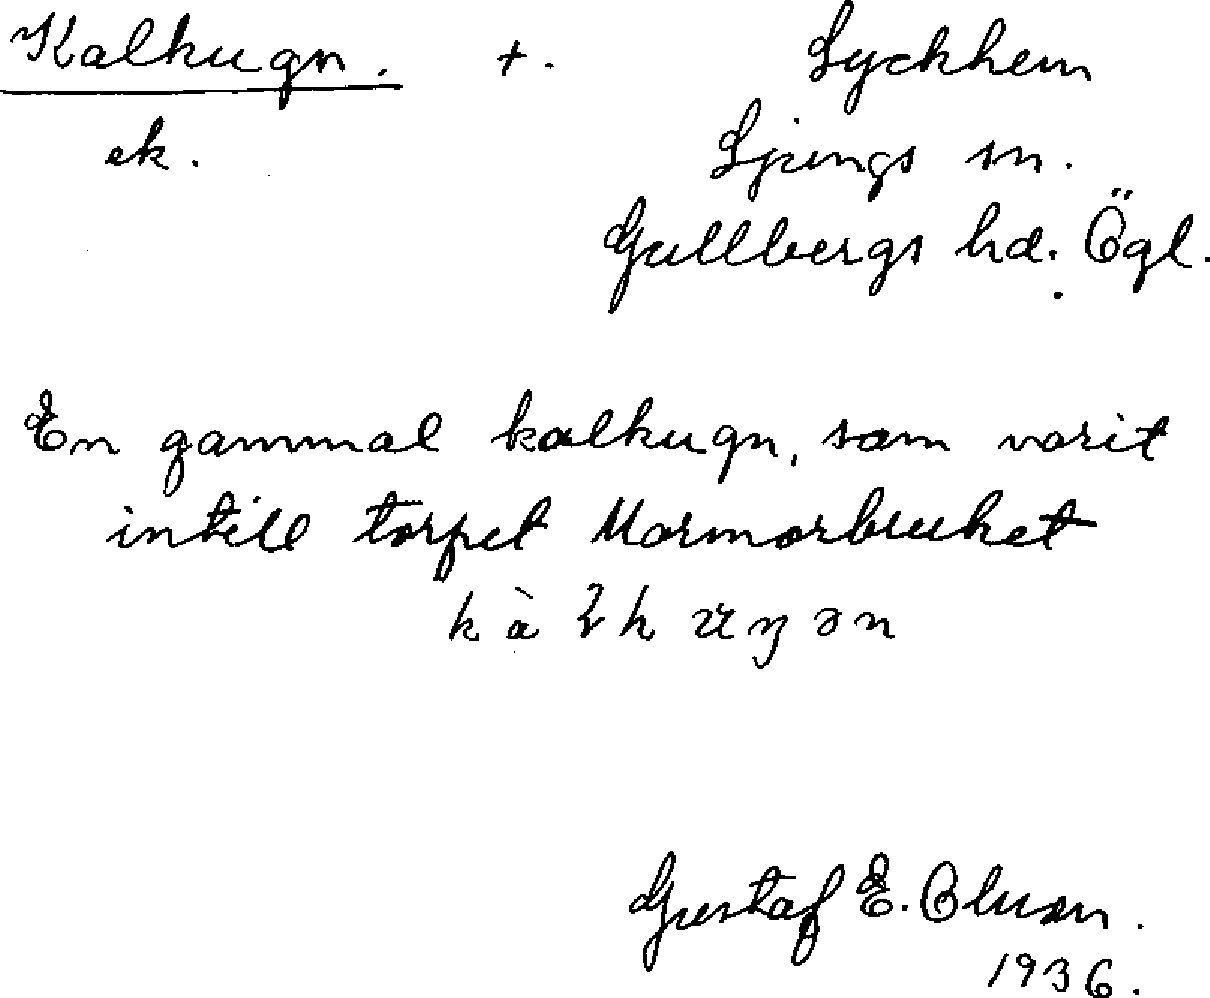 Kalkugn. +. Lyckhem
ek. Ljungs sn.
Gullbergs hd. Ögl.
En gammal kalkugn, som varit
intill torpet Marmorbruket
Gustaf E. Olsson.
1936.